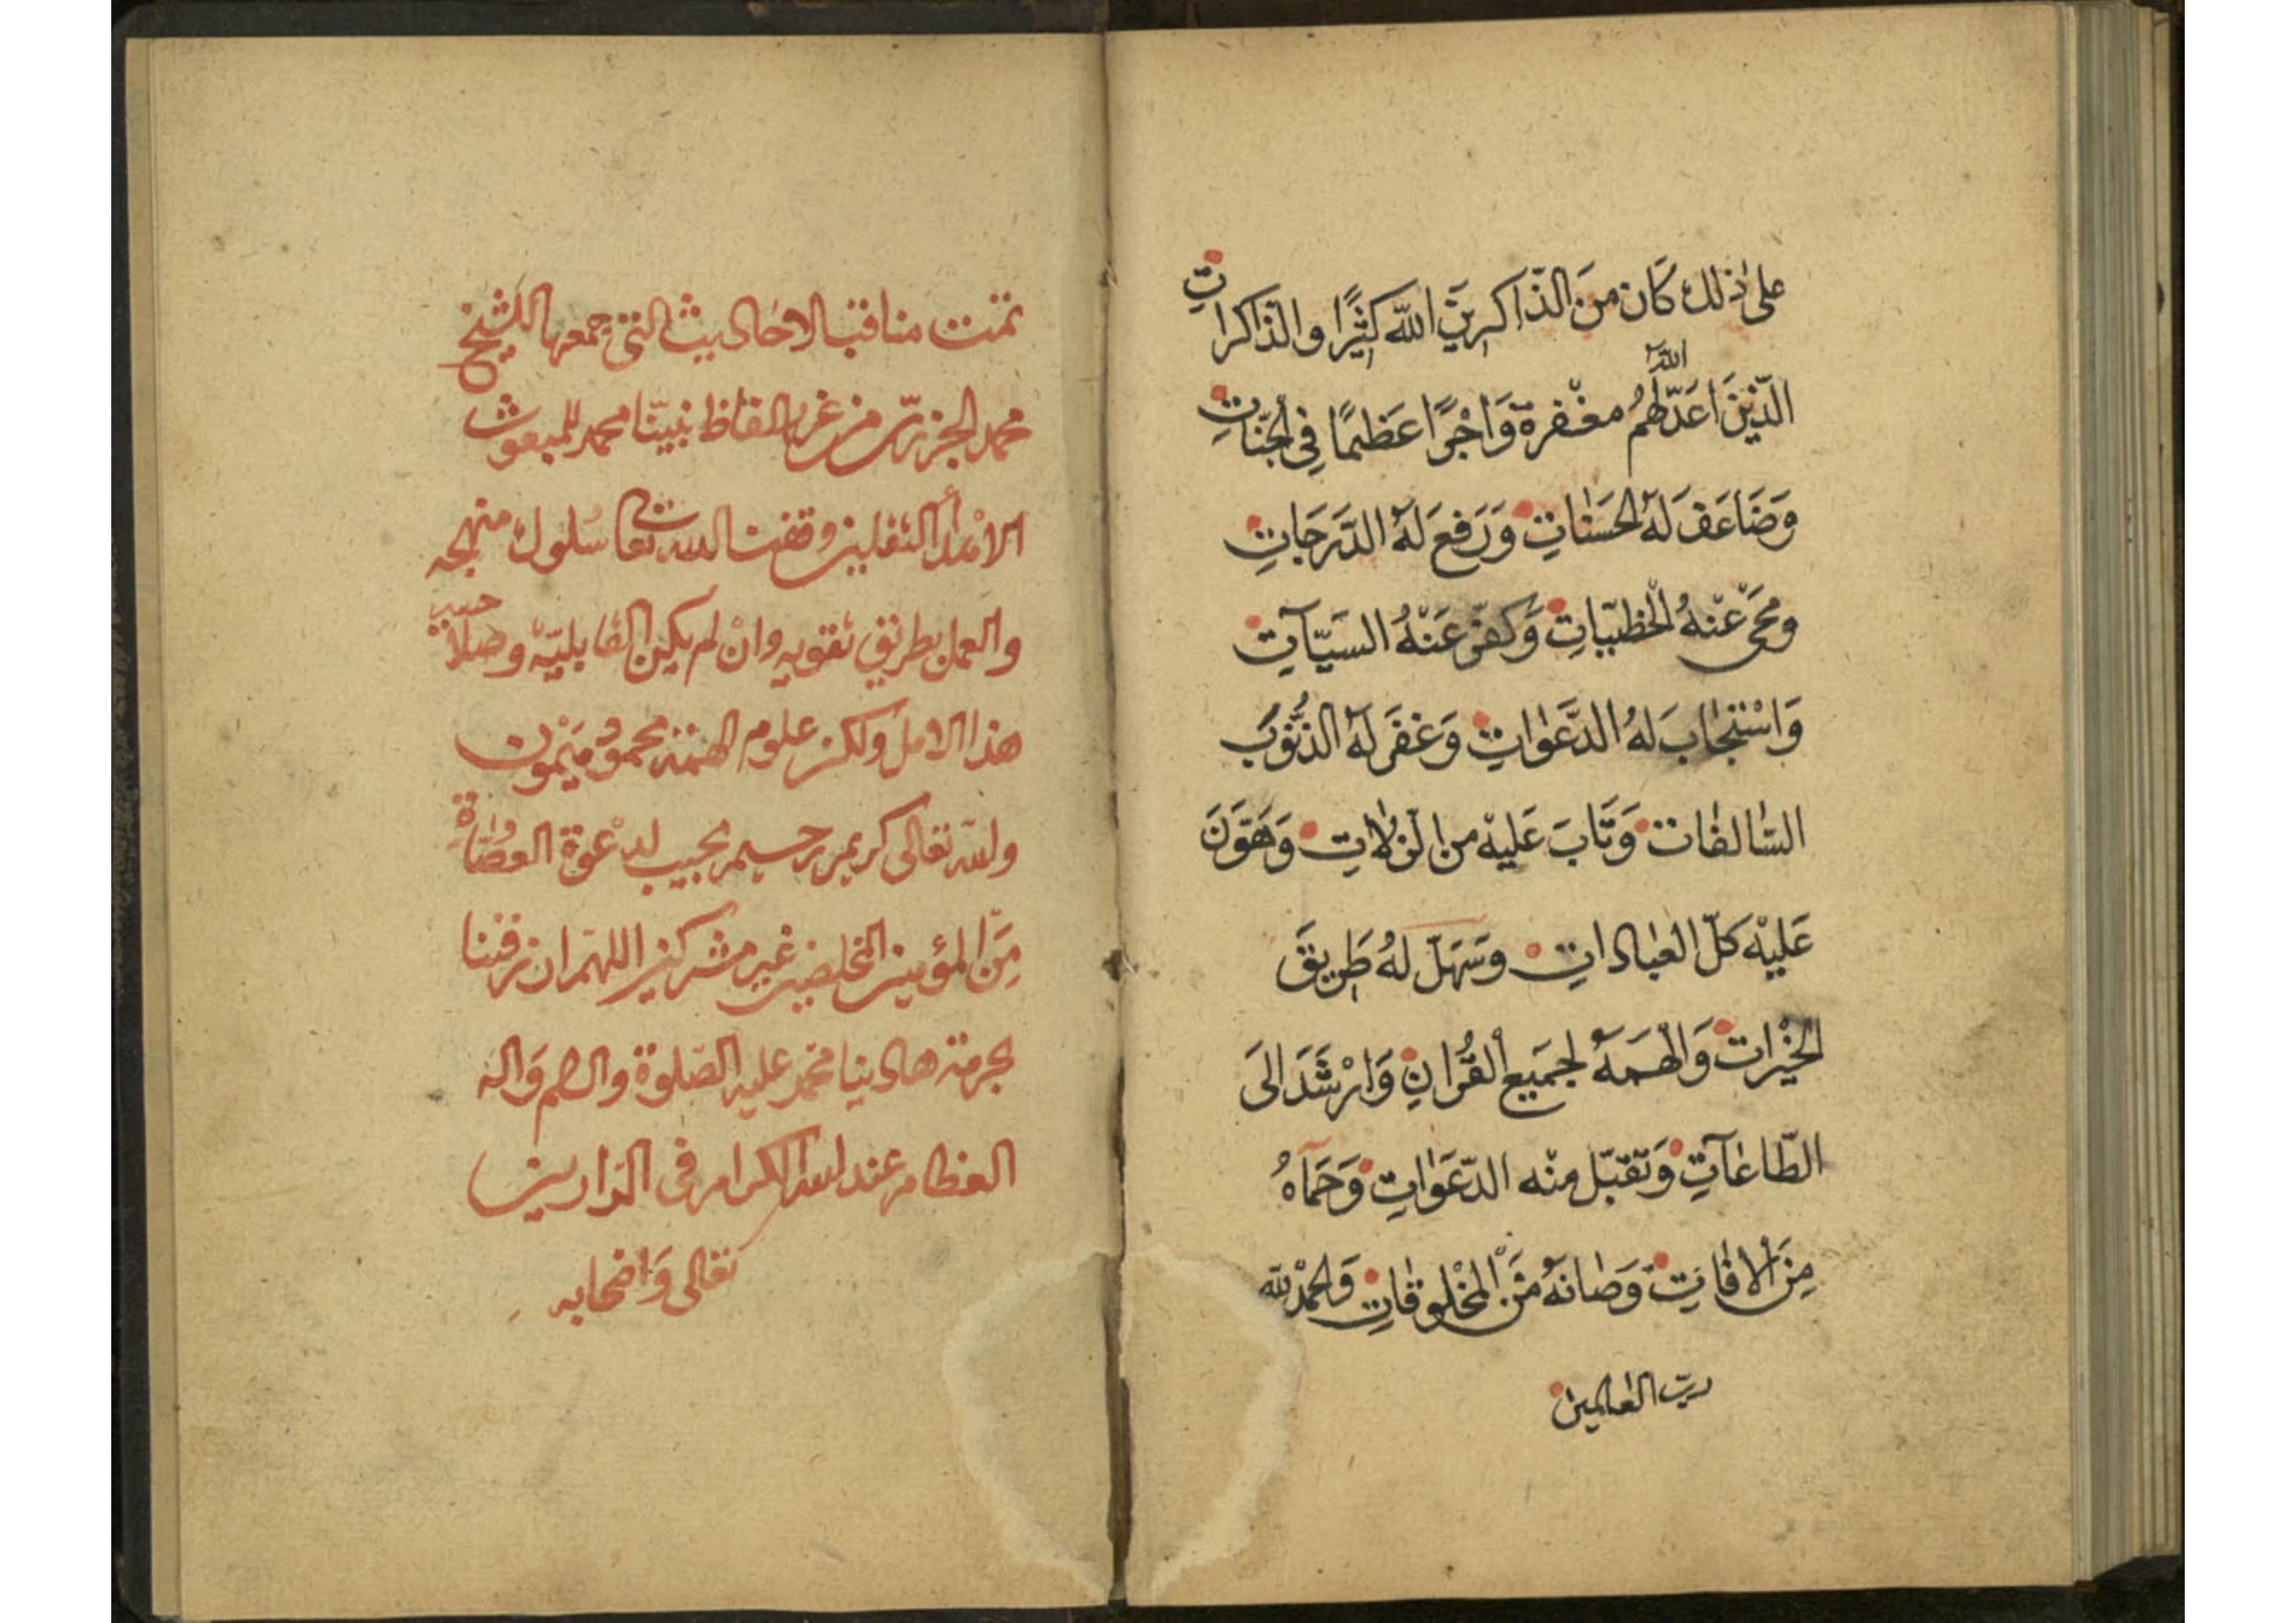 على ذلك كَان منَ الذّاكرينَ اللّه كثيرًا والذاكراتِ
الّذينَ اَعَدّ اللّهُ لهمُ مغْفرة وَاَجْرًا عَظيمًا فى الجنّاتِ
وَضَاعَفَ لهُ الحَسَنٰاتِ وَرَفعَ لهُ الدّرَجَاتِ
ومحٰى عْنهُ الْخطيٓئاتِ وَكفّر عَنْهُ السَيّاٰتِ
وَاسْتجٰابَ لهُ الدَّعَوٰاتِ وَغفَر لهُ الذنُوبَ
السّالفات وَتَابَ عَليْه من الزلّاتِ وَهَوّنَ
عَليْه كلّ العٰبادات وسَهّلَ لهُ طَريقَ
الخيْراتِ وَالْهمَهُ لجمَيع القُرانِ وَارْشَدَ الىَ
الطّاعٰاتِ وَتقبّل منْه الدّعَوٰاتِ وَحمَاهُ
مِنَ الافاتِ وَصانهُ منَ المخْلوقاتِ وَالحمْدُ للّه
ربّ العٰالمين
تمّت مناقب الاحَاديث التى جمعها الشيخ
محمد الجزرىّ من غرر الفاظ نبيّنا محمد المبعوث
الثقلين وفقنا اللّه تعالى سُلوك منهجه
والعمل بطريق تقويه وانْ لم يكن القابليّة و
هذا الامل ولكن علوم الهمّة محمودٌ
ولله تعالى كريم رحيم يجيب لدعوة العصَاة
مِنَ المؤمنين المخلصين غير مشركين اللهم ان ترقنا
بحرمة هادينا محمد عليه الصّلوة والسلام وَاله
العظام عند الله الكرام فى الدّارين
تعالى وَاصْحابه